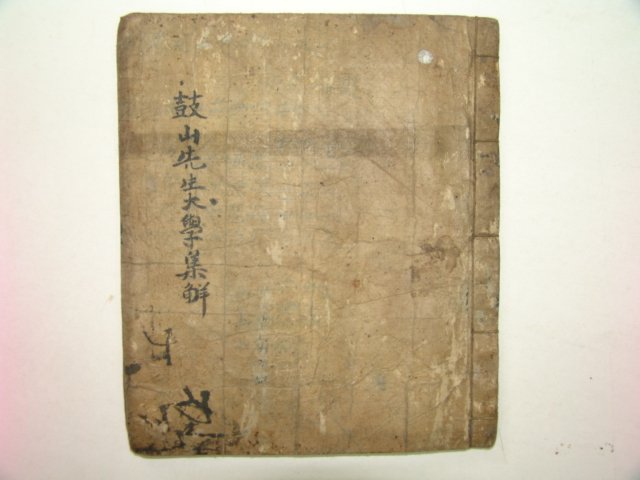 鼓山先生大學集解